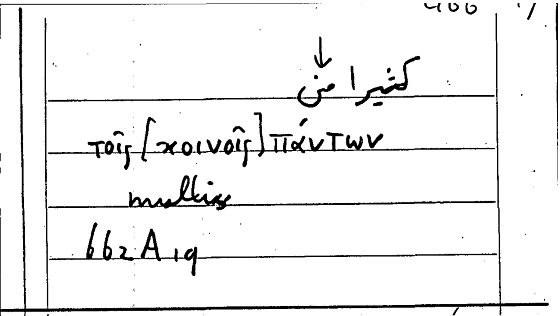 كثيرا من
τοῖς [κοινοῖς] πάντων
multis
662 A 19